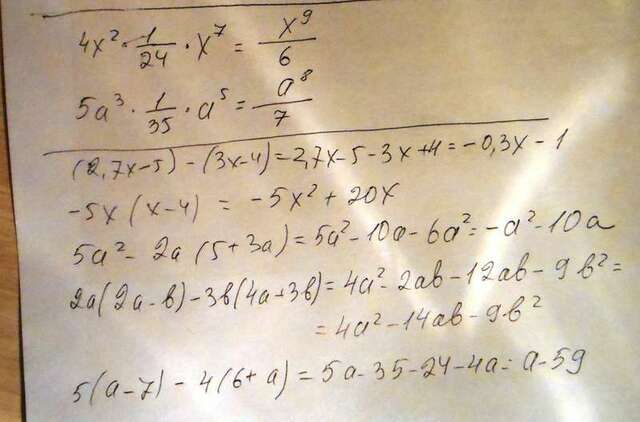 4x² · 1/24 · x⁷ = x⁹/6
5a³ · 1/35 · a⁵ = a⁸/7
(2,7x-5) - (3x-4) = 2,7x-5-3x+4 = -0,3x-1
-5x (x-4) = -5x² + 20x
5a² - 2a (5+3a) = 5a² - 10a - 6a² = -a² - 10a
2a(2a-b) - 3b(4a+3b) = 4a² - 2ab - 12ab - 9b² =
= 4a² - 14ab - 9b²
5(a-7) - 4(6+a) = 5a-35-24-4a = a-59